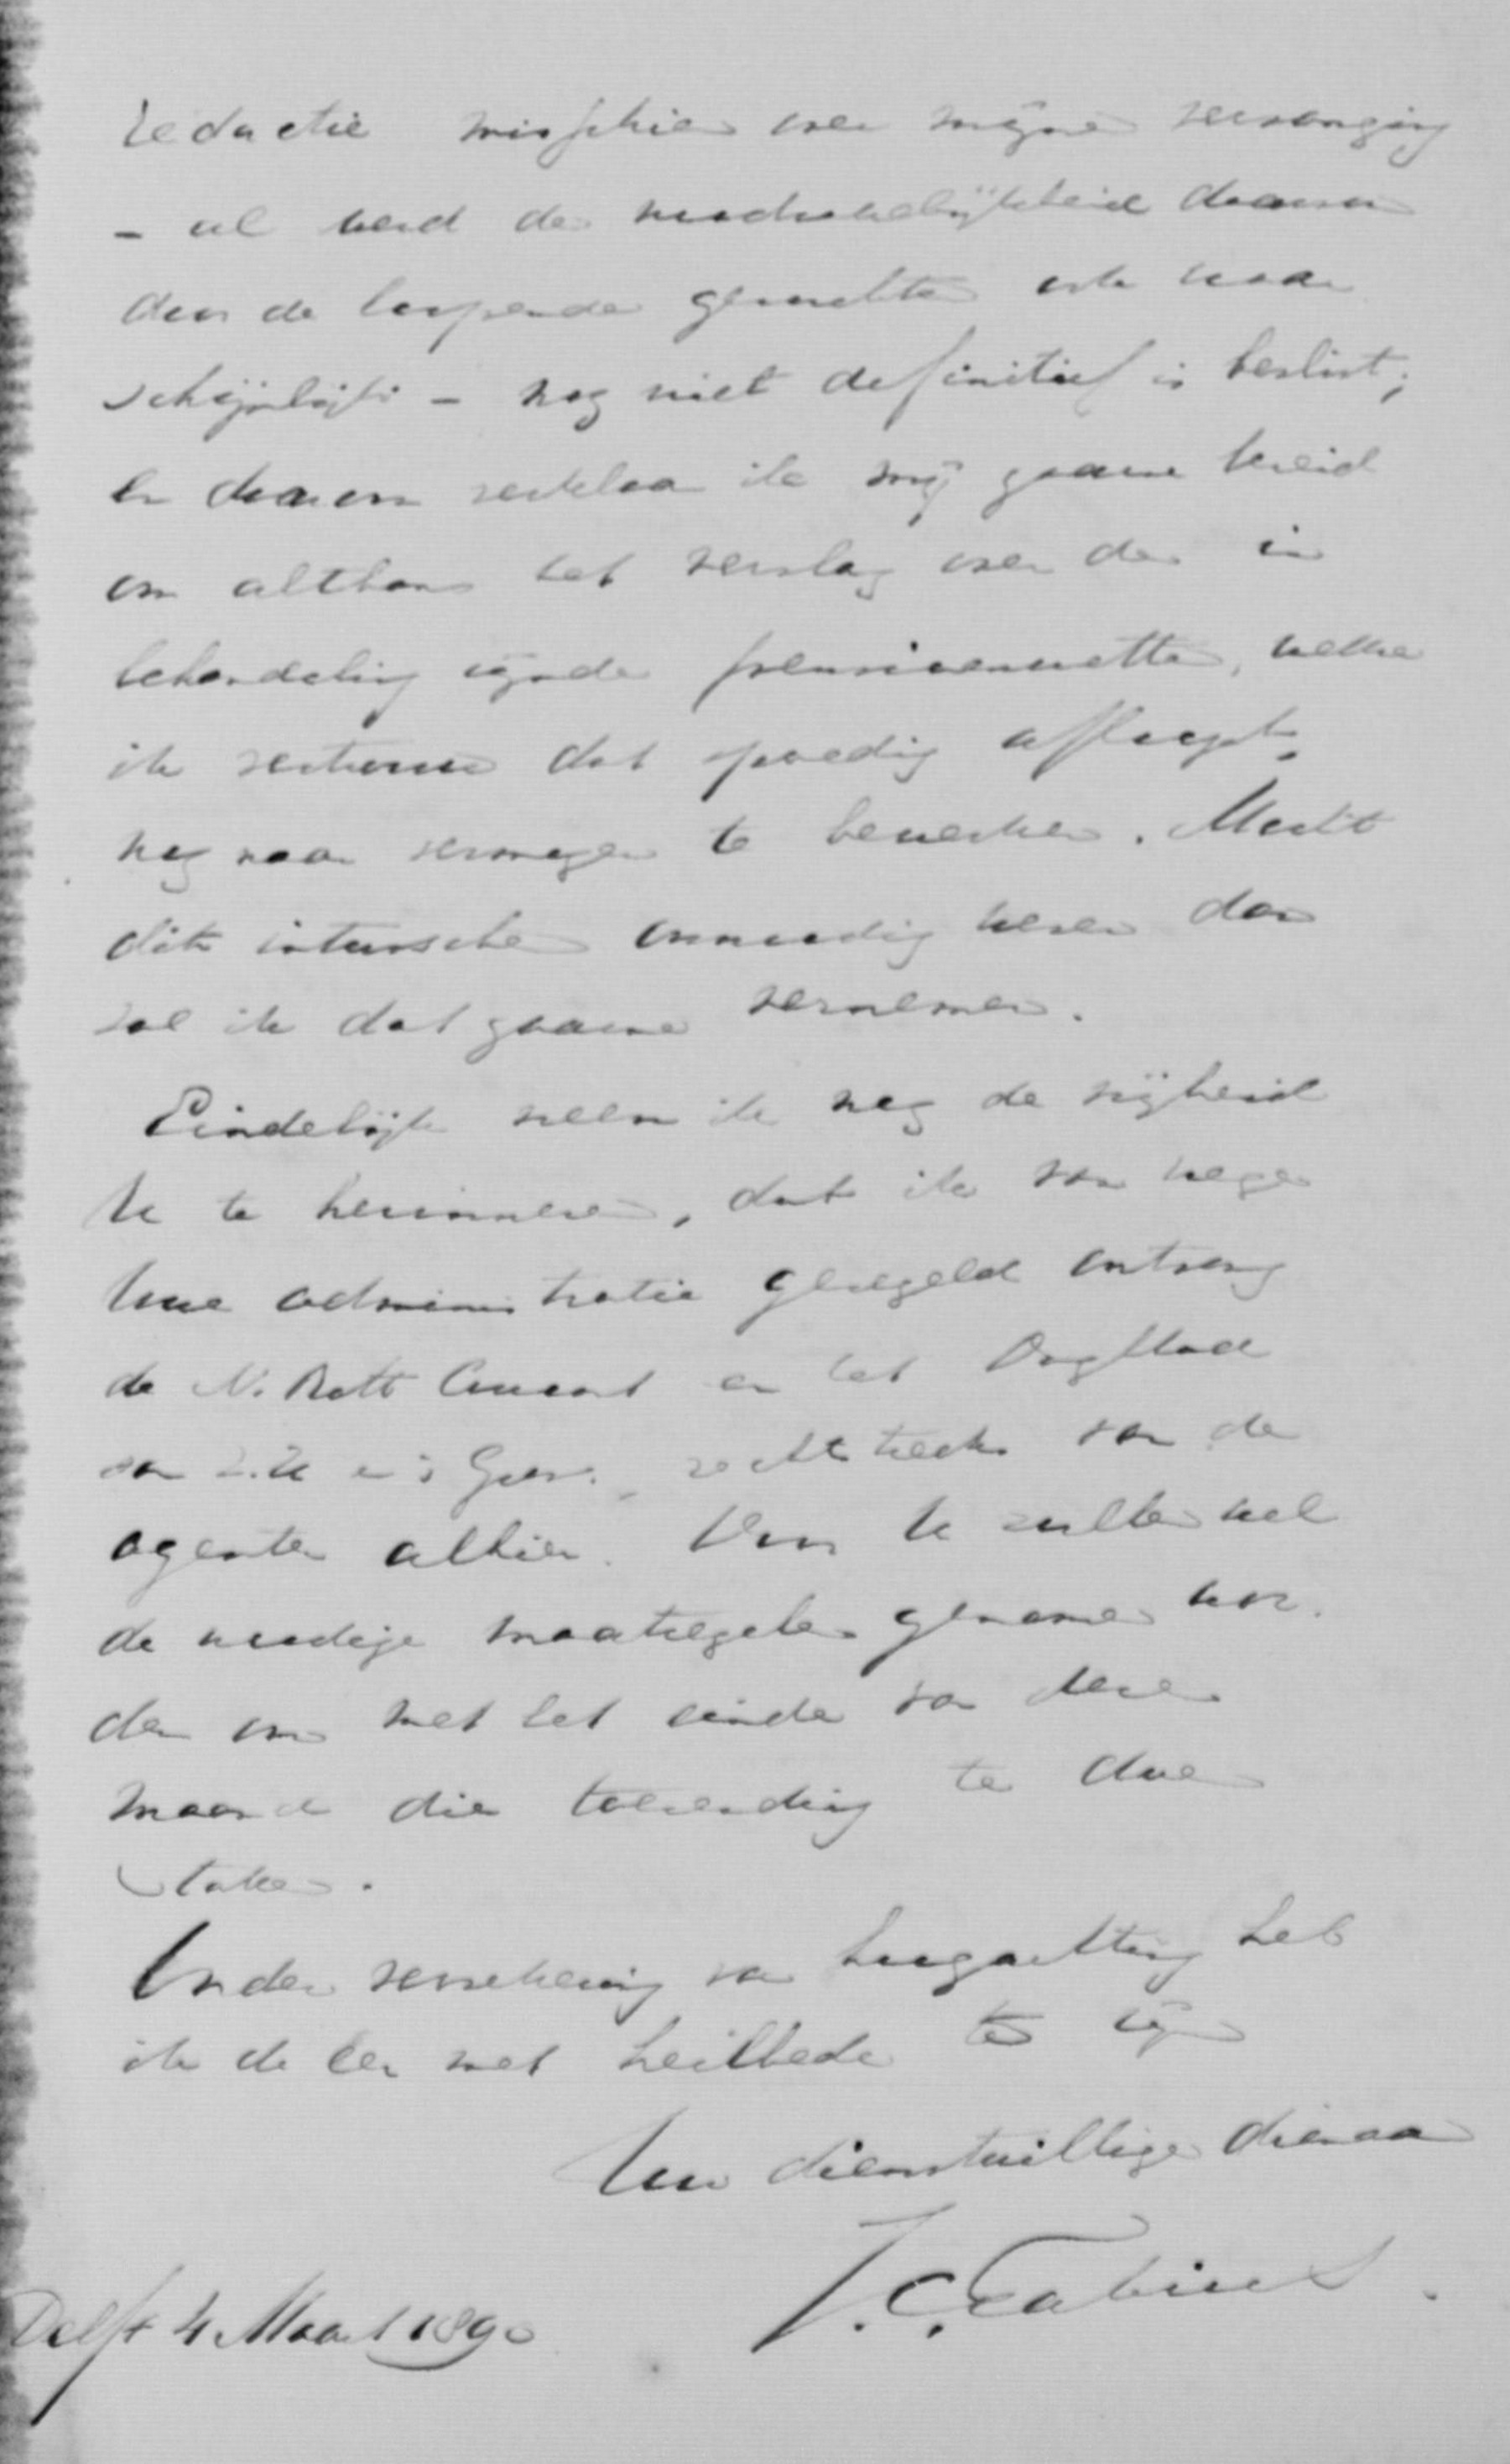 redactie misschien over mijne vervanging
- al werd de noodzakelijkheid daarvan
door de loopende geruchten ook waar
schijnlijk - nog niet definitief is beslist;
en daarom verklaar ik mij gaarne bereid
om althans het verslag over de in
behandeling zijnde pensioenwetten, welke
ik vertrouw dat spoedig afloopt,
nog naar vermogen te bewerken. Mocht
dit intusschen onnoodig wezen dan
zal ik dat gaarne vernemen.
Eindelijk neem ik nog de vrijheid
U te herinneren, dat ik van wege
Uwe administratie geregeld ontvang
de N. Rott Courant en het Dagblad
van Z.H. en 's Grav. rechtstreeks van de
agenten alhier. Door U zullen wel
de noodige maatregelen genomen wor.
den om met het einde van deze
maand die toezending te doen
staken.
Onder verzekering van hoogachting heb
ik de eer met heilbede te zijn
Uw dienstwillige dienaar
J.C. Fabius.
Delft 4 Maart 1890